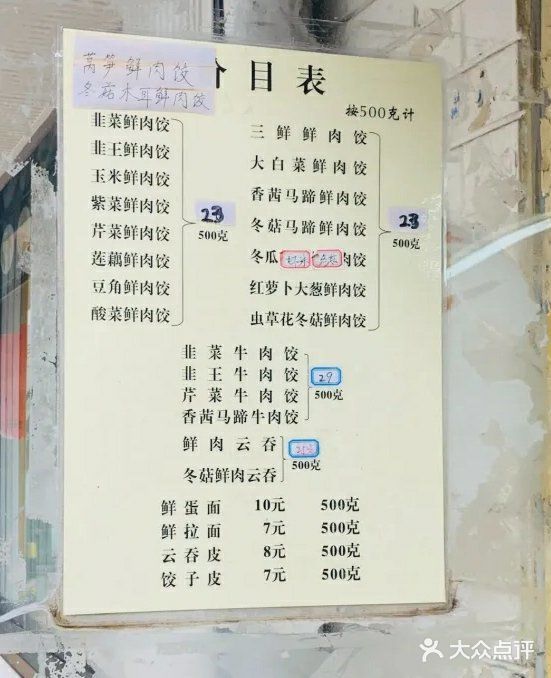 莴笋鲜肉饺
冬菇木耳鲜肉饺
价目表
按500克计
韭菜鲜肉饺
韭王鲜肉饺
玉米鲜肉饺
紫菜鲜肉饺
芹菜鲜肉饺
莲藕鲜肉饺
豆角鲜肉饺
酸菜鲜肉饺
23
500克
三鲜鲜肉饺
大白菜鲜肉饺
香茜马蹄鲜肉饺
冬菇马蹄鲜肉饺
冬瓜 肉饺
红萝卜大葱鲜肉饺
虫草花冬菇鲜肉饺
23
500克
韭菜牛肉饺
韭王牛肉饺
芹菜牛肉饺
香茜马蹄牛肉饺
29
500克
鲜肉云吞
冬菇鲜肉云吞
500克
鲜蛋面 10元 500克
鲜拉面 7元 500克
云吞皮 8元 500克
饺子皮 7元 500克
大众点评